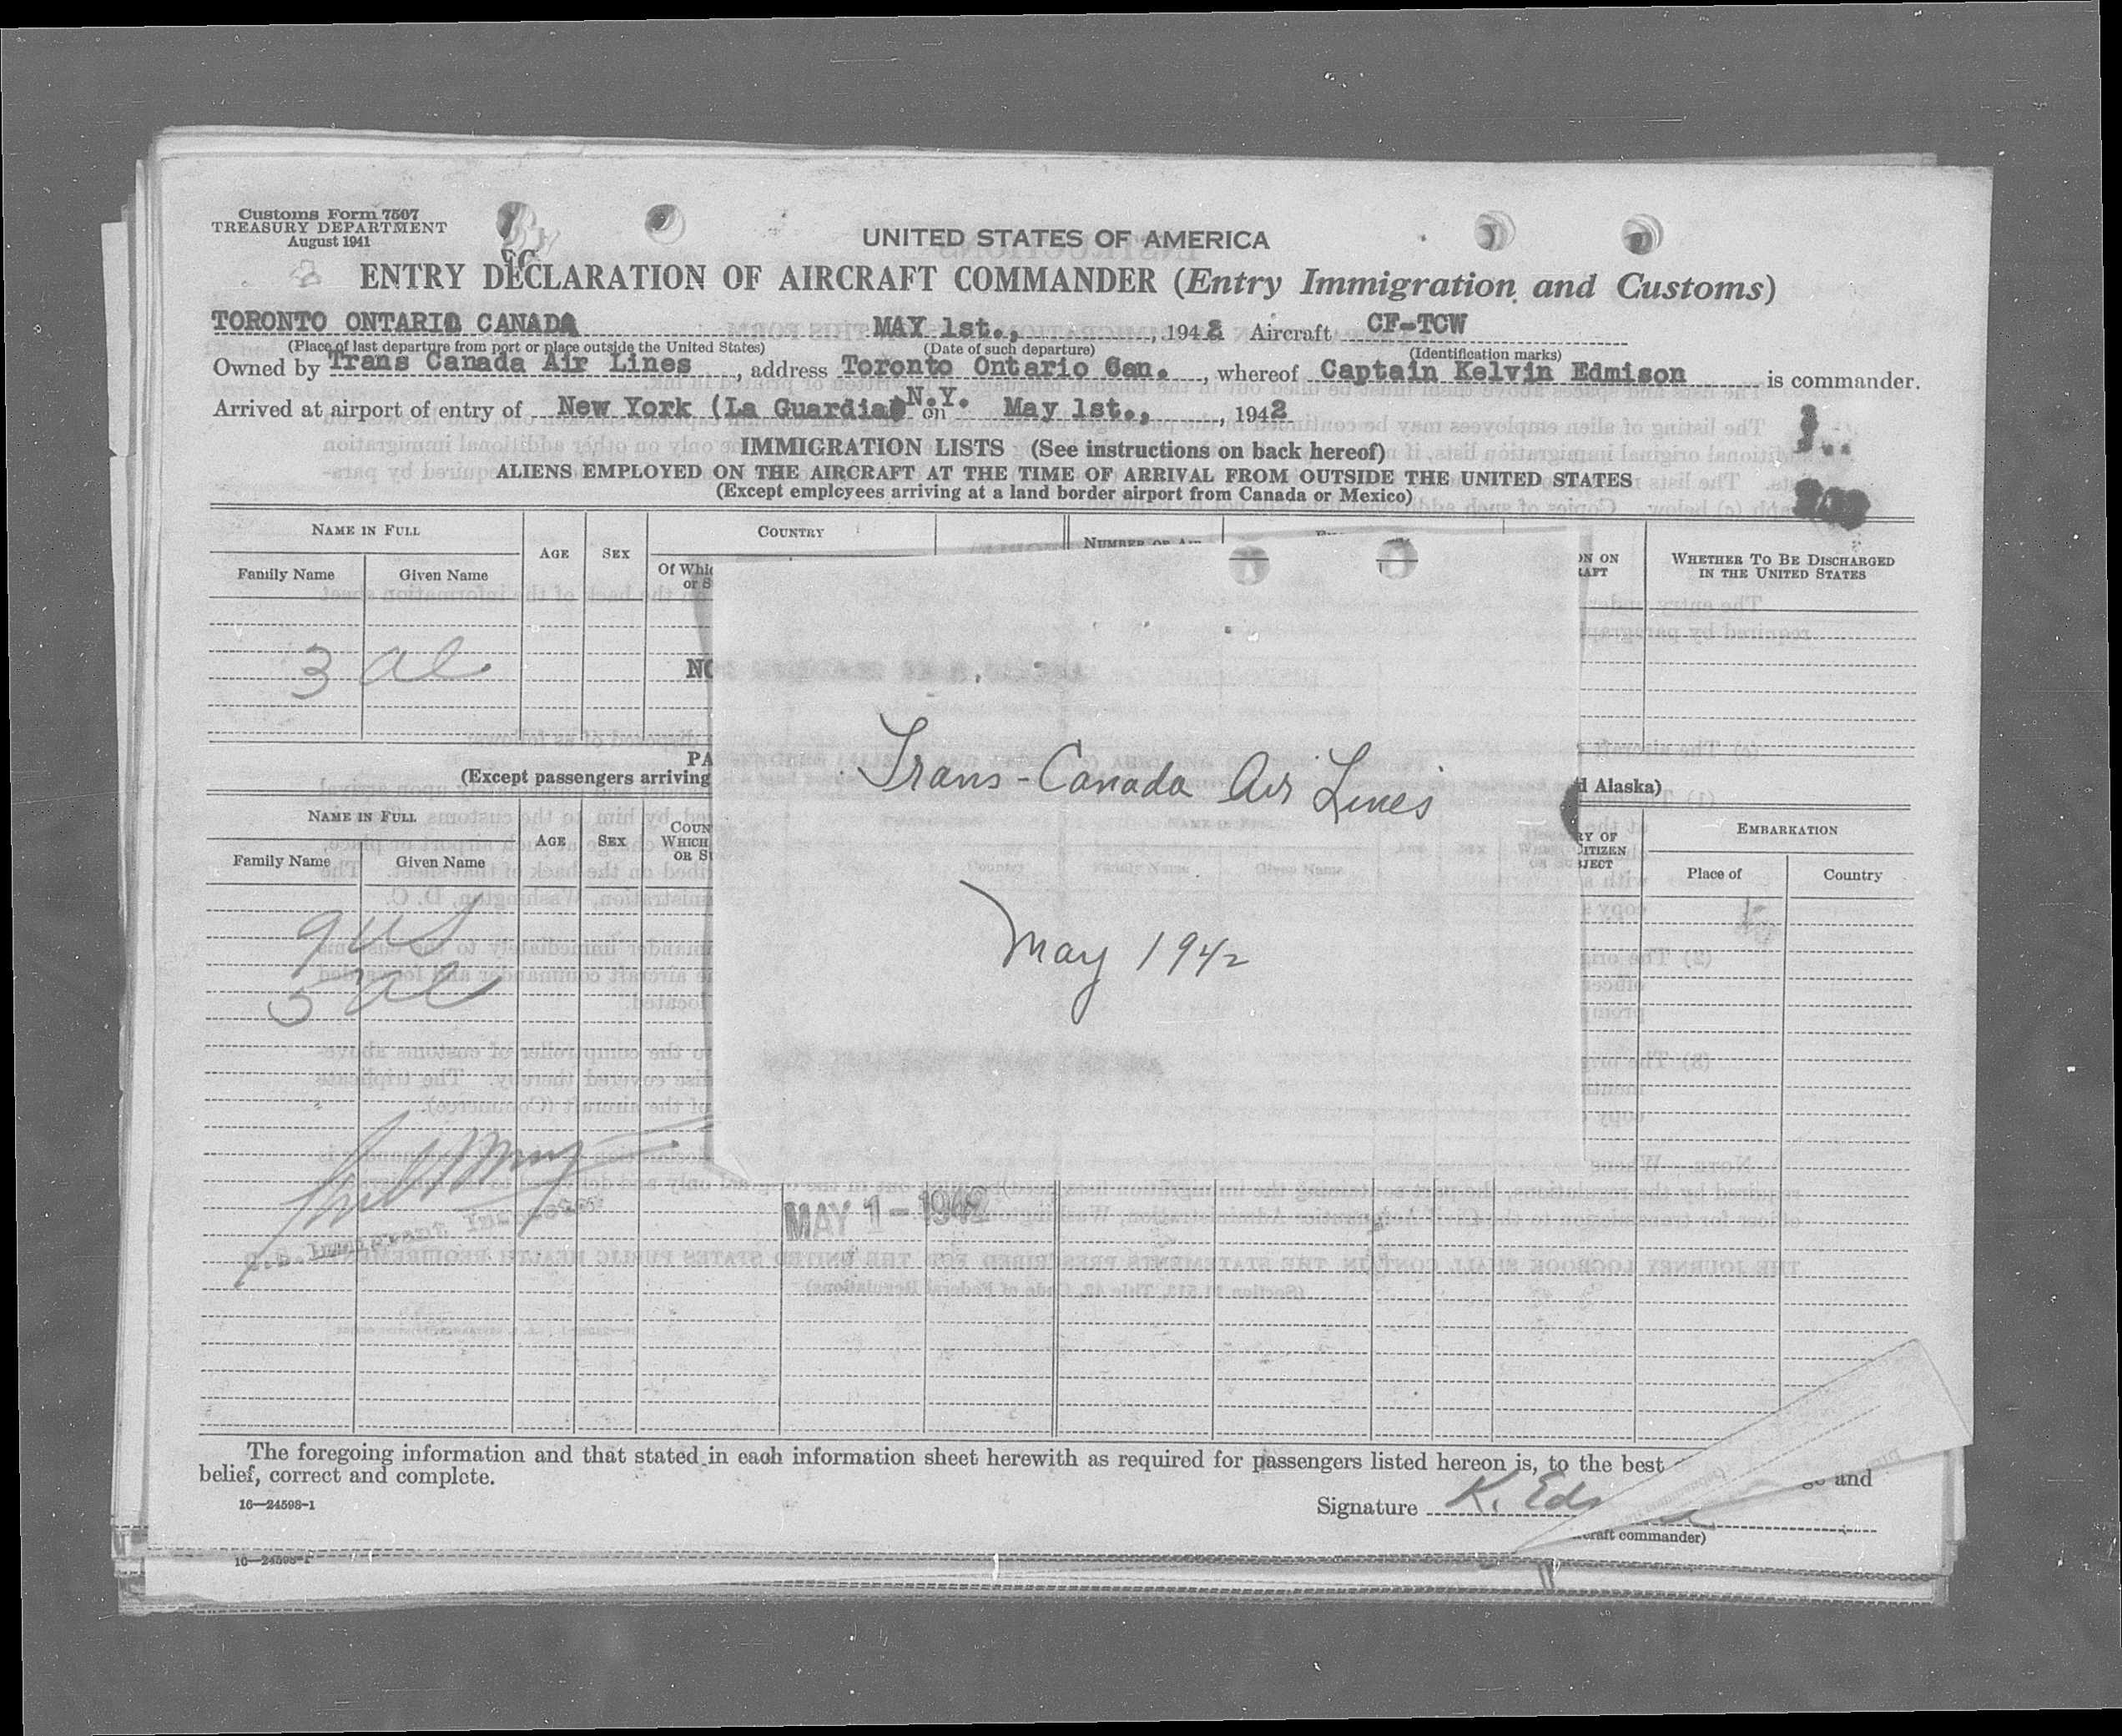 Customs Form 7507
TREASURY DEPARTMENT
August 1941
UNITED STATES OF AMERICA
ENTRY DECLARATION OF AIRCRAFT COMMANDER (Entry Immigration and Customs)
TORONTO ONTARIO CANADA MAY 1st., , 1942 Aircraft CF-TCW
(Place of last departure from port or place outside the United States) (Date of such departure) (Identification marks)
Owned by Trans Canada Air Lines , address Toronto Ontario Can. , whereof Captain Kelvin Edmison is commander.
Arrived at airport of entry of New York (La Guardia) N.Y. on May 1st., , 1942
IMMIGRATION LISTS (See instructions on back hereof)
ALIENS EMPLOYED ON THE AIRCRAFT AT THE TIME OF ARRIVAL FROM OUTSIDE THE UNITED STATES
(Except employees arriving at a land border airport from Canada or Mexico)
NAME IN FULL
AGE SEX COUNTRY
WHETHER TO BE DISCHARGED
IN THE UNITED STATES
Family Name Given Name
3 al
Trans-Canada Air Lines
May 1942
(Except passengers arriving
d Alaska)
NAME IN FULL
AGE SEX
EMBARKATION
Family Name Given Name
Place of Country
9 US
5 al
MAY 1 - 1942
The foregoing information and that stated in each information sheet herewith as required for passengers listed hereon is, to the best
and
belief, correct and complete.
16—24598-1
Signature K. Ed
craft commander)
16—24598-1